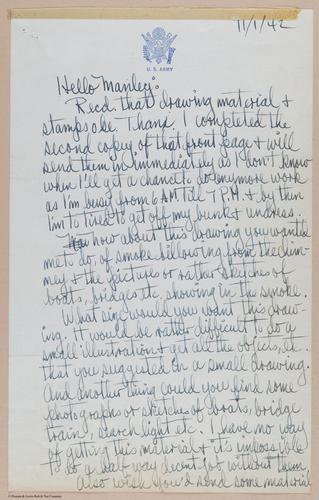 11/1/42
U.S. ARMY
Hello Manley:
Recd. that drawing material &
stamps oke. Thanx I completed the
second copy of that front page & will
send them in immediately as I don't know
when I'll get a chance to do anymore work
as I'm busy from 6 AM till 7 P.M. & by then
I'm to tired to get off my bunk & undress.
how about this drawing you wanted
me to do, of smoke billowing from the chim-
ney & the pictures or rather sketches of
boats, bridges etc. showing in the smoke.
What size would you want this draw-
ing. It would be rather difficult to do a
small illustration & get all the objects, etc.
that you suggested in a small drawing.
And another thing could you find some
photographs or sketches of boats, bridge
train, search light etc. I have no way
of getting this material & it's impossible
to do a half way decent job without them.
Also wish you'd send some material